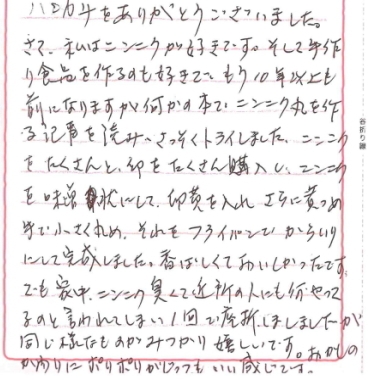 ハガキをありがとうございました。
さて、私はニンニクが好きです。そして手作
り食品を作るのも好きで、もう10年以上も
前になりますが何かの本で、ニンニク丸を作
る記事を読み、さっそくトライしました。ニンニク
をたくさんと、卵をたくさん購入し、ニンニク
を味噌状にして、卵黄を入れ さらに煮つめ
手で小さく丸め、それをフライパンで からいり
にして完成しました。香ばしくておいしかったです。
でも家中、ニンニク臭くて近所の人にも何やって
るのと言われてしまい1回で座折しましたが
同じ様なものがみつかり嬉しいです。おかしの
かわりに ポリポリかじっても いい感じです。
谷折り線